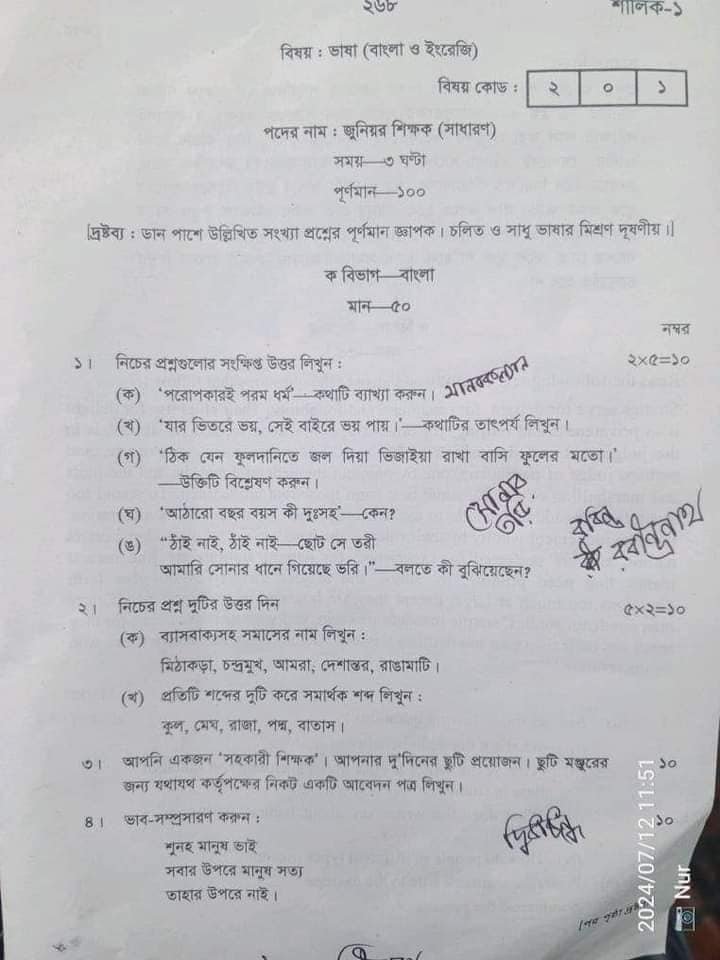 ২৬৮
শালিক-১
বিষয় : ভাষা (বাংলা ও ইংরেজি)
বিষয় কোড : ২ ০ ১
পদের নাম : জুনিয়র শিক্ষক (সাধারণ)
সময়—৩ ঘণ্টা
পূর্ণমান—১০০
[দ্রষ্টব্য : ডান পাশে উল্লিখিত সংখ্যা প্রশ্নের পূর্ণমান জ্ঞাপক। চলিত ও সাধু ভাষার মিশ্রণ দূষণীয়।]
ক বিভাগ—বাংলা
মান—৫০
নম্বর
১। নিচের প্রশ্নগুলোর সংক্ষিপ্ত উত্তর লিখুন : ২×৫=১০
(ক) ‘পরোপকারই পরম ধর্ম’—কথাটি ব্যাখ্যা করুন।
(খ) ‘যার ভিতরে ভয়, সেই বাইরে ভয় পায়।’—কথাটির তাৎপর্য লিখুন।
(গ) ‘ঠিক যেন ফুলদানিতে জল দিয়া ভিজাইয়া রাখা বাসি ফুলের মতো।’
—উক্তিটি বিশ্লেষণ করুন।
(ঘ) ‘আঠারো বছর বয়স কী দুঃসহ’—কেন?
সোনার
তরী
(ঙ) “ঠাঁই নাই, ঠাঁই নাই—ছোট সে তরী
আমারি সোনার ধানে গিয়েছে ভরি।”—বলতে কী বুঝিয়েছেন?
রবীন্দ্রনাথ
২। নিচের প্রশ্ন দুটির উত্তর দিন ৫×২=১০
(ক) ব্যাসবাক্যসহ সমাসের নাম লিখুন :
মিঠাকড়া, চন্দ্রমুখ, আমরা, দেশান্তর, রাঙামাটি।
(খ) প্রতিটি শব্দের দুটি করে সমার্থক শব্দ লিখুন :
কূল, মেঘ, রাজা, পদ্ম, বাতাস।
৩। আপনি একজন ‘সহকারী শিক্ষক’। আপনার দু’দিনের ছুটি প্রয়োজন। ছুটি মঞ্জুরের ১০
জন্য যথাযথ কর্তৃপক্ষের নিকট একটি আবেদন পত্র লিখুন।
৪। ভাব-সম্প্রসারণ করুন : ১০
শুনহ মানুষ ভাই
সবার উপরে মানুষ সত্য
তাহার উপরে নাই।
2024/07/12 11:51
Nur